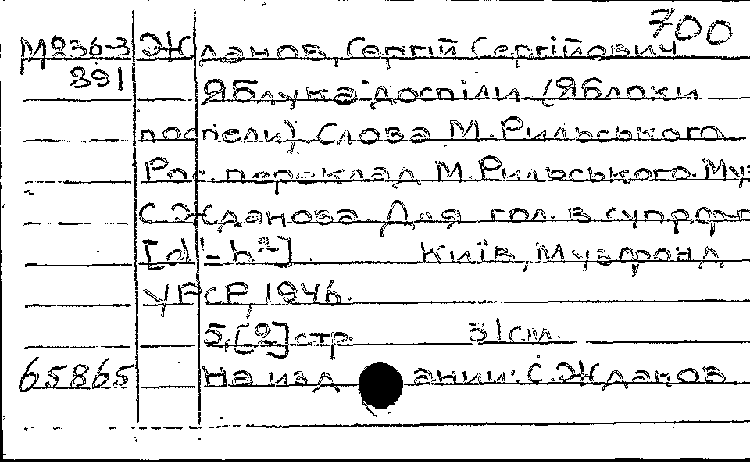 700
М236-3 Жданов, Сергій Сергійович
391 Яблука доспіли (Яблоки
поспели) Слова М. Рильського
Рос. переклад М. Рильського. Муз
С. Жданова Для гол. в супр. ф-п
[d¹-h²]. Київ, Музфонд
УРСР, 1946.
5,[2] стр 31см.
65865 На издании: С. Жданов.